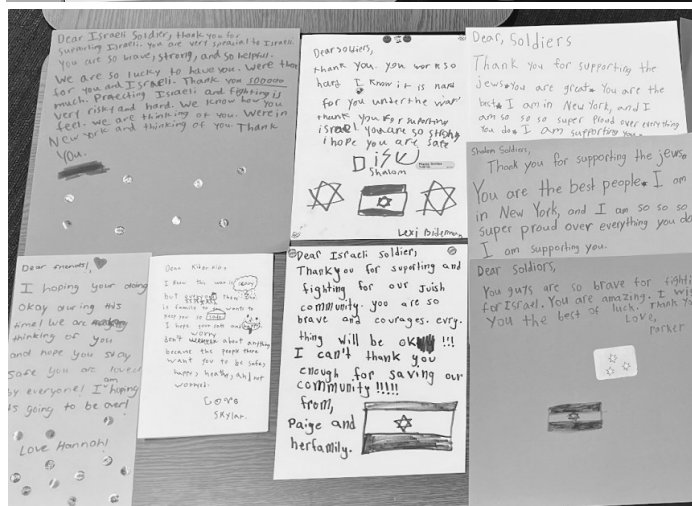 Dear Israeli Soldier, thank you for
supporting Israeli. you are very special to Israeli
you are so brave, strong, and so helpful.
We are so lucky to have you. Were there
for you and Israeli. Thank you sooooo
much. Protecting Israeli and fighting is
very risky and hard. We know how you
feel. we are thinking of you. Were in
New York and thinking of you. Thank
You.
Dear soldiers,
thank you. you work so
hard I know it is hard
for you under the war
thank you for supporting
israel you are so strong
i hope you are safe
שלום
Shalom
Lexi
Dear, Soldiers
Thank you for supporting the
jews. You are great. You are the
best. I am in New York, and I
am so so so super proud over everything
You do. I am supporting you.
Shalom Soldiers,
Thank you for supporting the jews.
You are the best people. I am
in New York, and I am so so so
super proud over everything you do
I am supporting you.
Dear friends!,
I hoping your doing
Okay during this
time! We are
thinking of you
and hope you stay
safe you are loved
by everyone! I am hoping
is going to be over!
Love Hannah!
Dear
I know the war is
but everyone there
is familie wants to
keep you so safe
I hope your safe and
don't worry about anything
because the people there
want you to be safe,
happy, healthy, and not
worried.
Love
Skylar.
Dear Israeli soldier,
Thankyou for suporting and
fighting for our Juish
community. you are so
brave and courages. evry.
thing will be ok !!!
I can't thank you
enough for saving our
community !!!!!
from,
Paige and
herfamily.
Dear Soldiors,
You guys are so brave for fighti
for Israel. You are amazing. I wi
you the best of luck. Thank yo
Love,
Parker